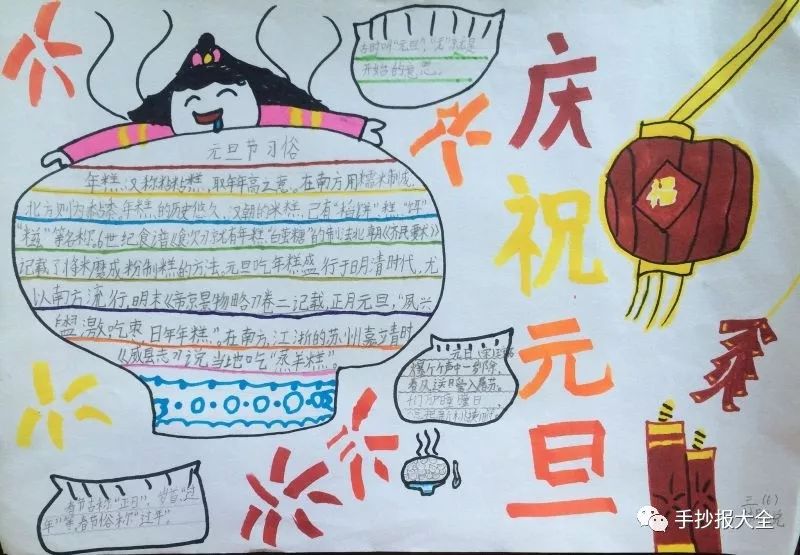 古时叫"元旦","元"就是
开始的意思。
庆祝元旦
福
元旦节习俗
年糕,又称粘粘糕,取年年高之意。在南方用糯米制成,
北方则为黍。年糕的历史悠久,汉朝的米糕已有"稻饼""糕""饵"
"糍"等名称。6世纪食谱《食次》就有年糕"白茧糖"的制法,北朝《齐民要术》
记载了将米磨成粉制糕的方法。元旦吃年糕盛行于明清时代,尤
以南方流行,明末《帝京景物略》卷二记载,正月元旦,"夙兴
盥漱吃枣日年年糕"。在南方,江浙的苏州嘉靖时
《威县志》说当地吃"蒸羊糕"。
元日
爆竹声中一岁除,
春风送日暖入屠苏。
曈曈日
春节古称"正月","岁首""过
年"等,春节俗称"过年"。
三(6)
手抄报大全